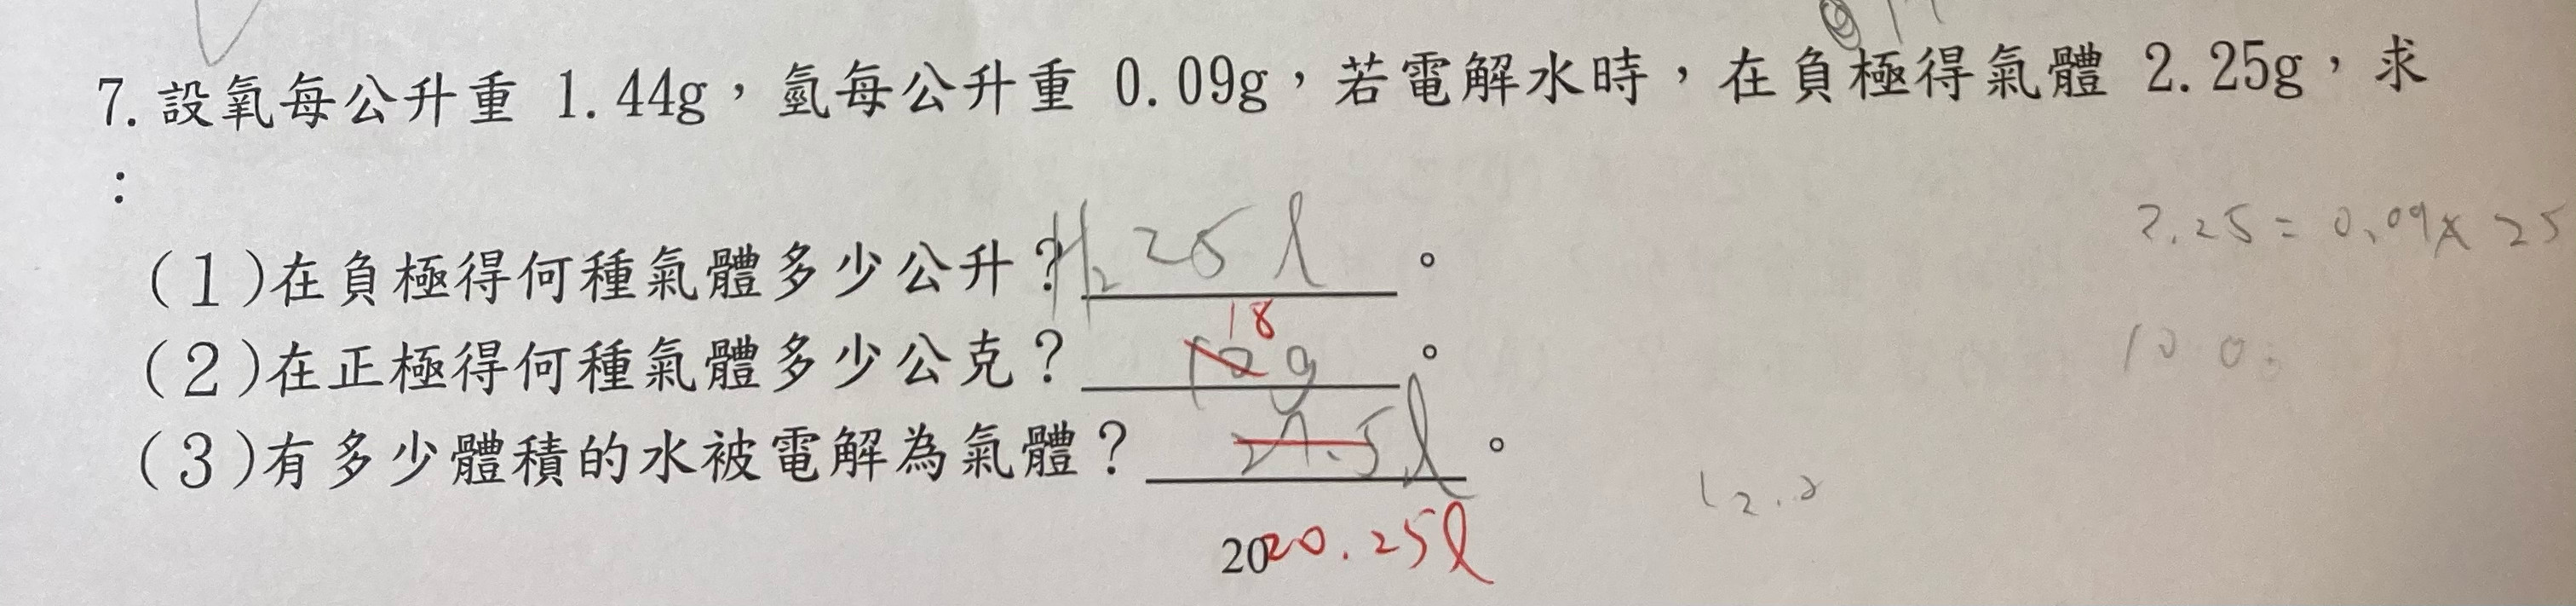 7. 設氧每公升重 1.44g，氫每公升重 0.09g，若電解水時，在負極得氣體 2.25g，求
：
2.25 = 0.09 x 25
(1)在負極得何種氣體多少公升？H₂ 25 l。
18
(2)在正極得何種氣體多少公克？ g。
(3)有多少體積的水被電解為氣體？ .5 l。
12.2
20
20.25l